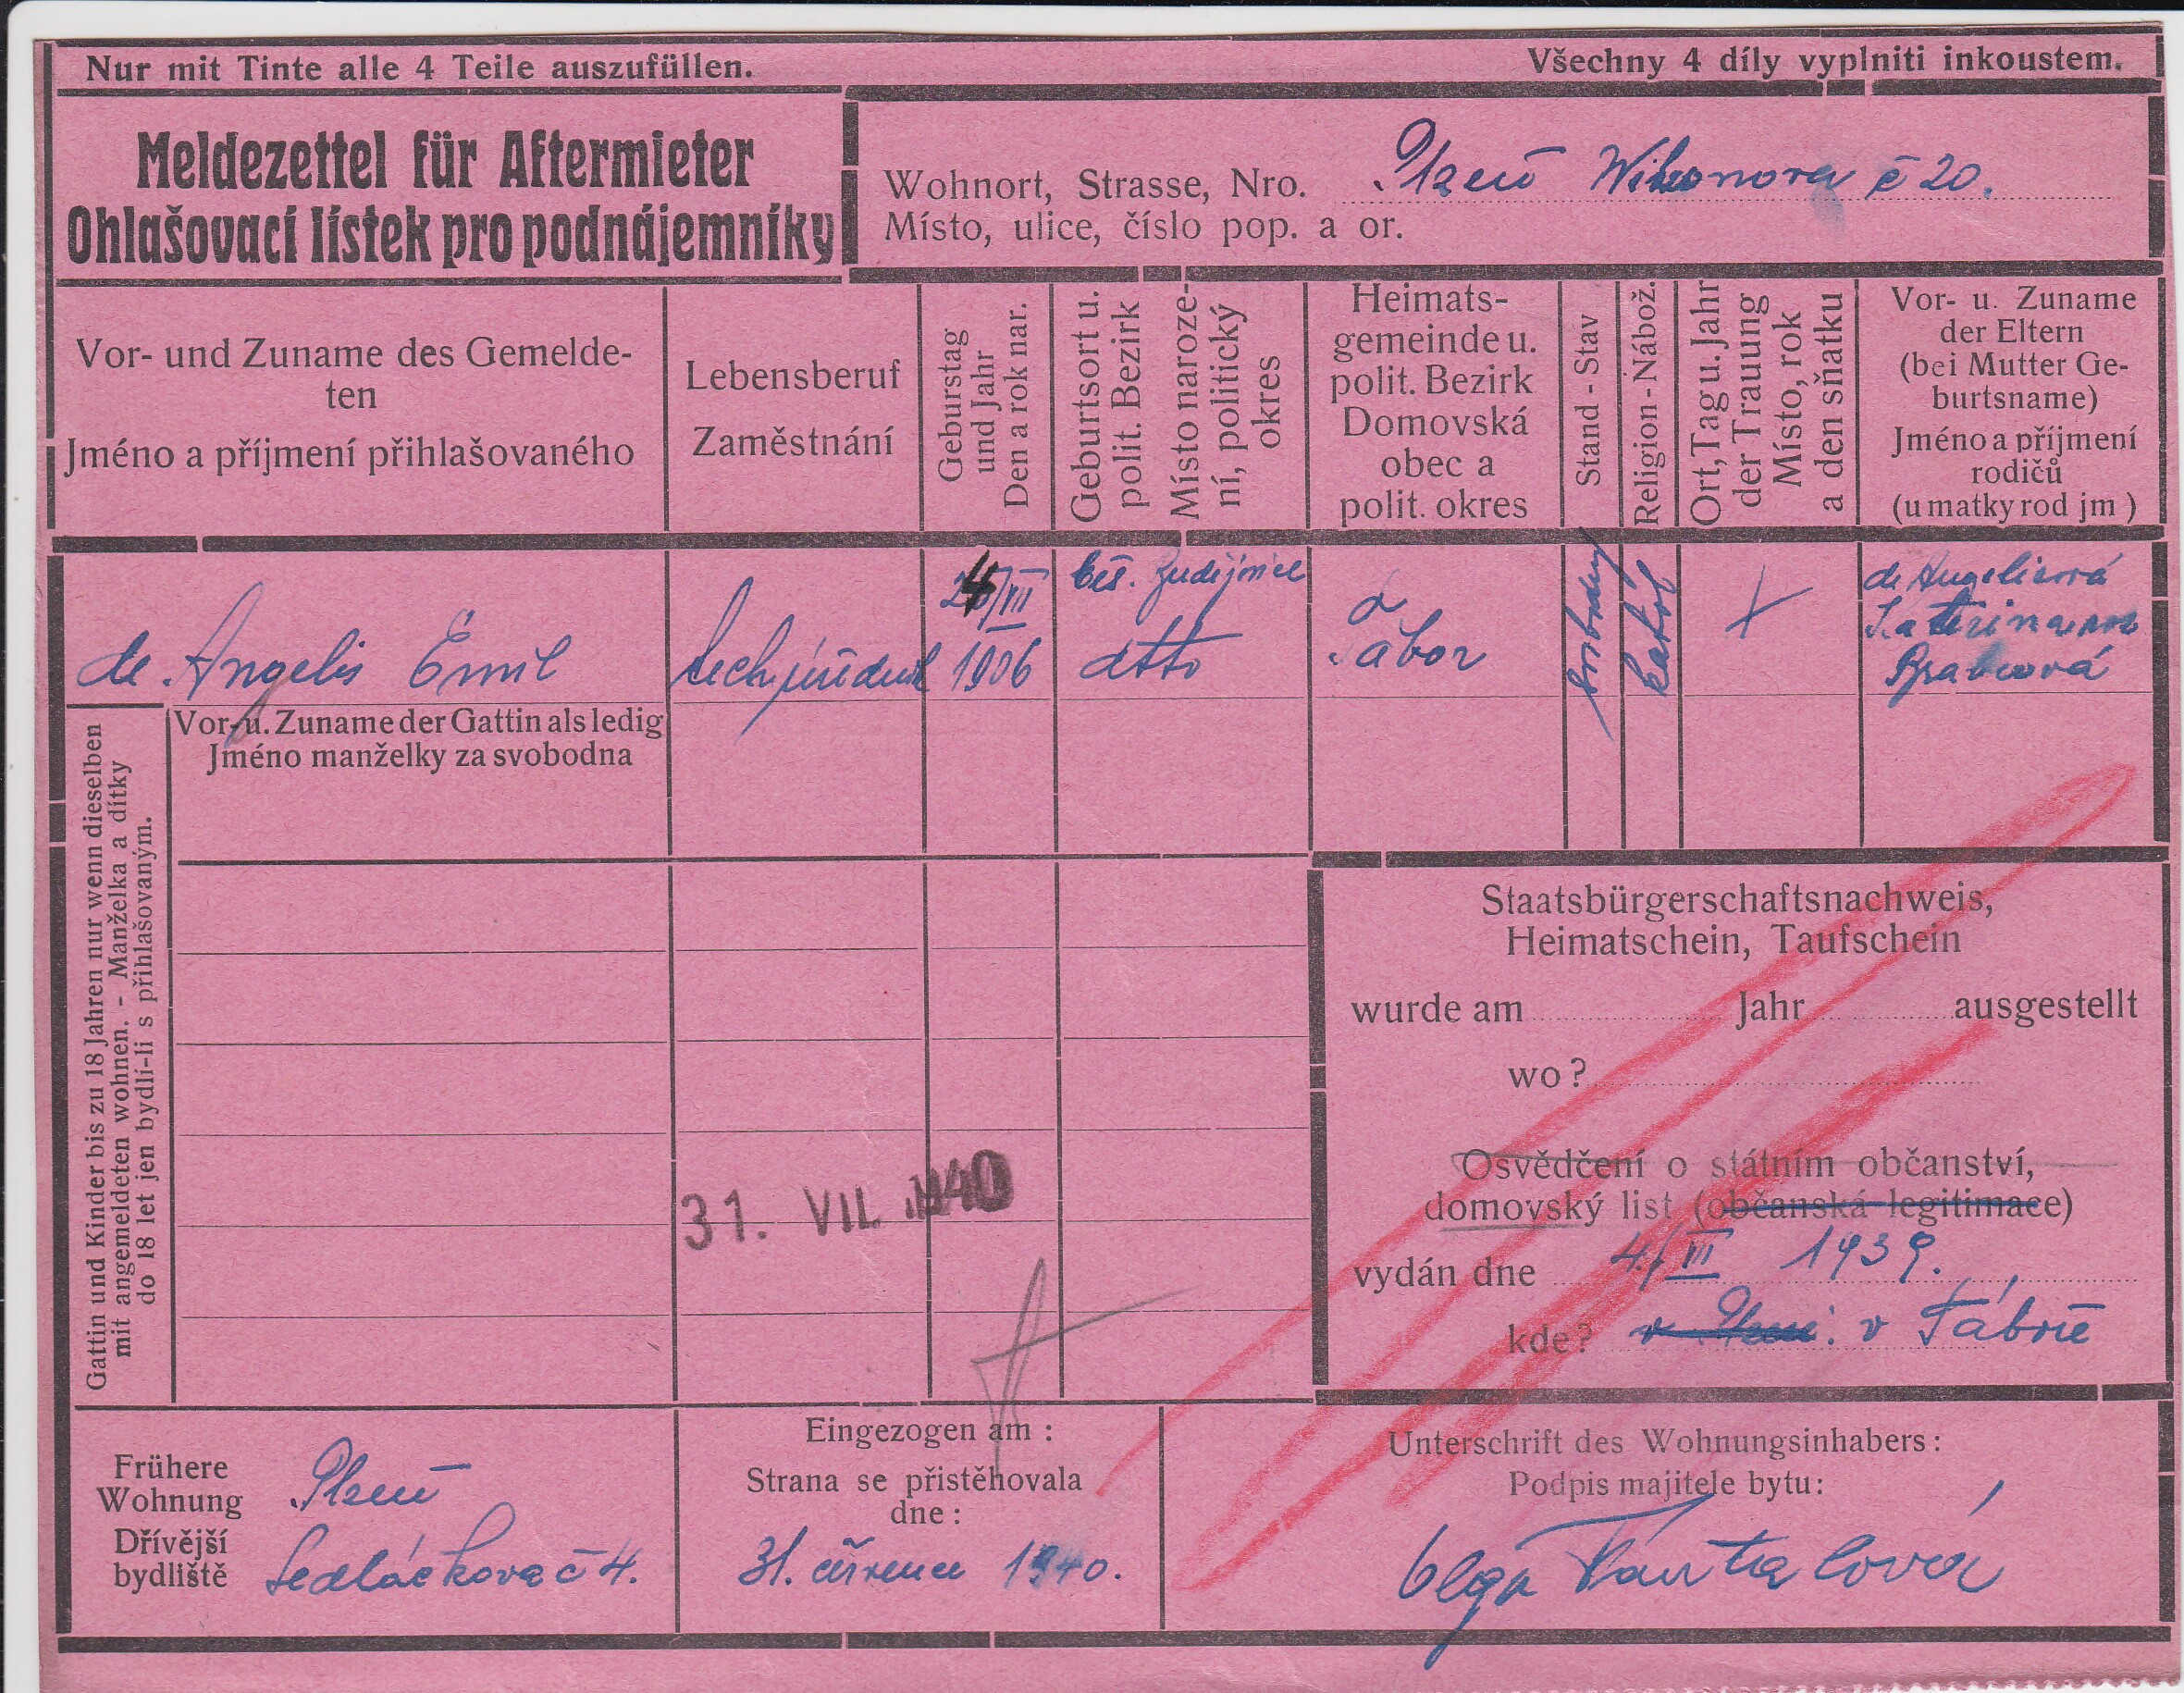 Nur mit Tinte alle 4 Teile auszufüllen.
Všechny 4 díly vyplniti inkoustem.
Meldezettel für Aftermieter
Ohlašovací lístek pro podnájemníky
Wohnort, Strasse, Nro.
Místo, ulice, číslo pop. a or.
Plzeň č 20.
Vor- und Zuname des Gemelde-
ten
Jméno a příjmení přihlašovaného
Lebensberuf
Zaměstnání
Geburstag
und Jahr
Den a rok nar.
Geburtsort u.
polit. Bezirk
Místo naroze-
ní, politický
okres
Heimats-
gemeinde u.
polit. Bezirk
Domovská
obec a
polit. okres
Stand - Stav
Religion - Nábož.
Ort, Tag u. Jahr
der Trauung
Místo, rok
a den sňatku
Vor- u. Zuname
der Eltern
(bei Mutter Ge-
burtsname)
Jméno a příjmení
rodičů
(u matky rod jm )
de Angelis Emil
tech. úředník
/VII
1906
Čes. Budějovice
dtto
Tábor
svobodný
katol
de Angelisová
Kateřina roz
Vor- u. Zuname der Gattin als ledig
Jméno manželky za svobodna
Gattin und Kinder bis zu 18 Jahren nur wenn dieselben
mit angemeldeten wohnen. - Manželka a dítky
do 18 let jen bydlí-li s přihlašovaným.
31. VII. 1940
Staatsbürgerschaftsnachweis,
Heimatschein, Taufschein
wurde am Jahr ausgestellt
wo?
Osvědčení o státním občanství,
domovský list (občanská legitimace)
vydán dne 4./III 1939.
kde? v Plzni. v Táboře
Frühere
Wohnung
Dřívější
bydliště
Plzeň
Sedláčkova č 4.
Eingezogen am :
Strana se přistěhovala
dne :
31. července 1940.
Unterschrift des Wohnungsinhabers :
Podpis majitele bytu :
Olga